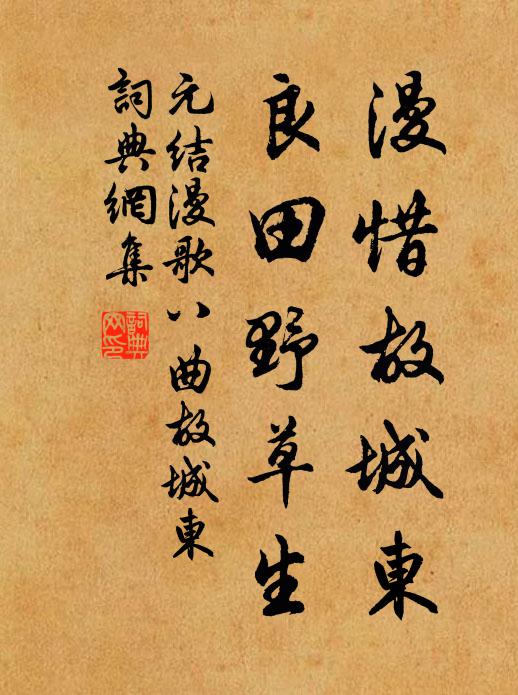 漫惜故城東
良田野草生
元结漫歌八曲故城東
詞典網集
詞典
网印